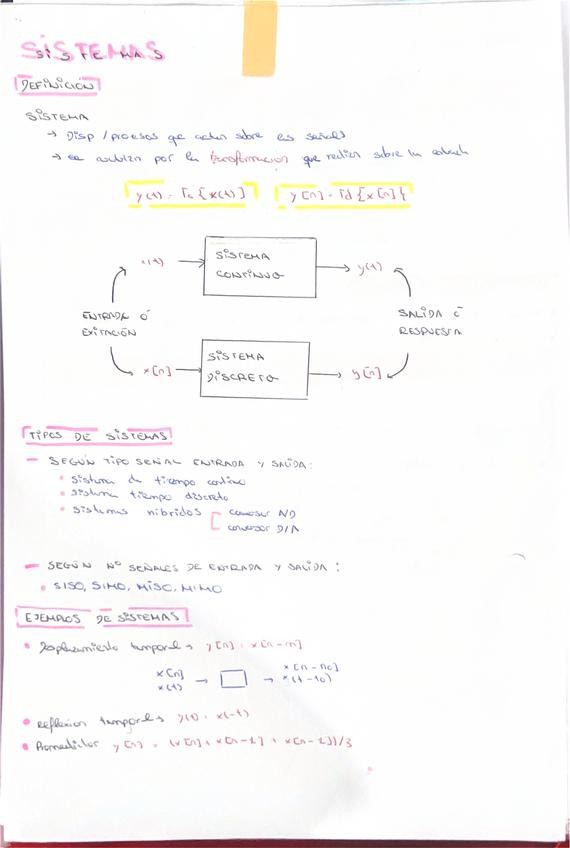 SISTEMAS
DEFINICIÓN
SISTEMA
→ Disp / procesos que actuan sobre las señales
→ se analizan por la transformacion que realizan sobre la entrada
y(t) = Tc {x(t)} y[n] = Td {x[n]}
x(t) → SISTEMA CONTINUO → y(t)
ENTRADA Ó EXITACIÓN
SALIDA Ó RESPUESTA
x[n] → SISTEMA DISCRETO → y[n]
TIPOS DE SISTEMAS
— SEGÚN TIPO SEÑAL ENTRADA Y SALIDA:
• sistema de tiempo continuo
• sistema tiempo discreto
• sistemas hibridos [ conversor A/D
conversor D/A
— SEGÚN Nº SEÑALES DE ENTRADA Y SALIDA:
• SISO, SIMO, MISO, MIMO
EJEMPLOS DE SISTEMAS
• Desplazamiento temporal → y[n] = x[n-m]
x[n] x[n-n0]
x(t) → → x(t-t0)
• Reflexion temporal → y(t) = x(-t)
• Promediador y[n] = (x[n] + x[n-1] + x[n-2])/3